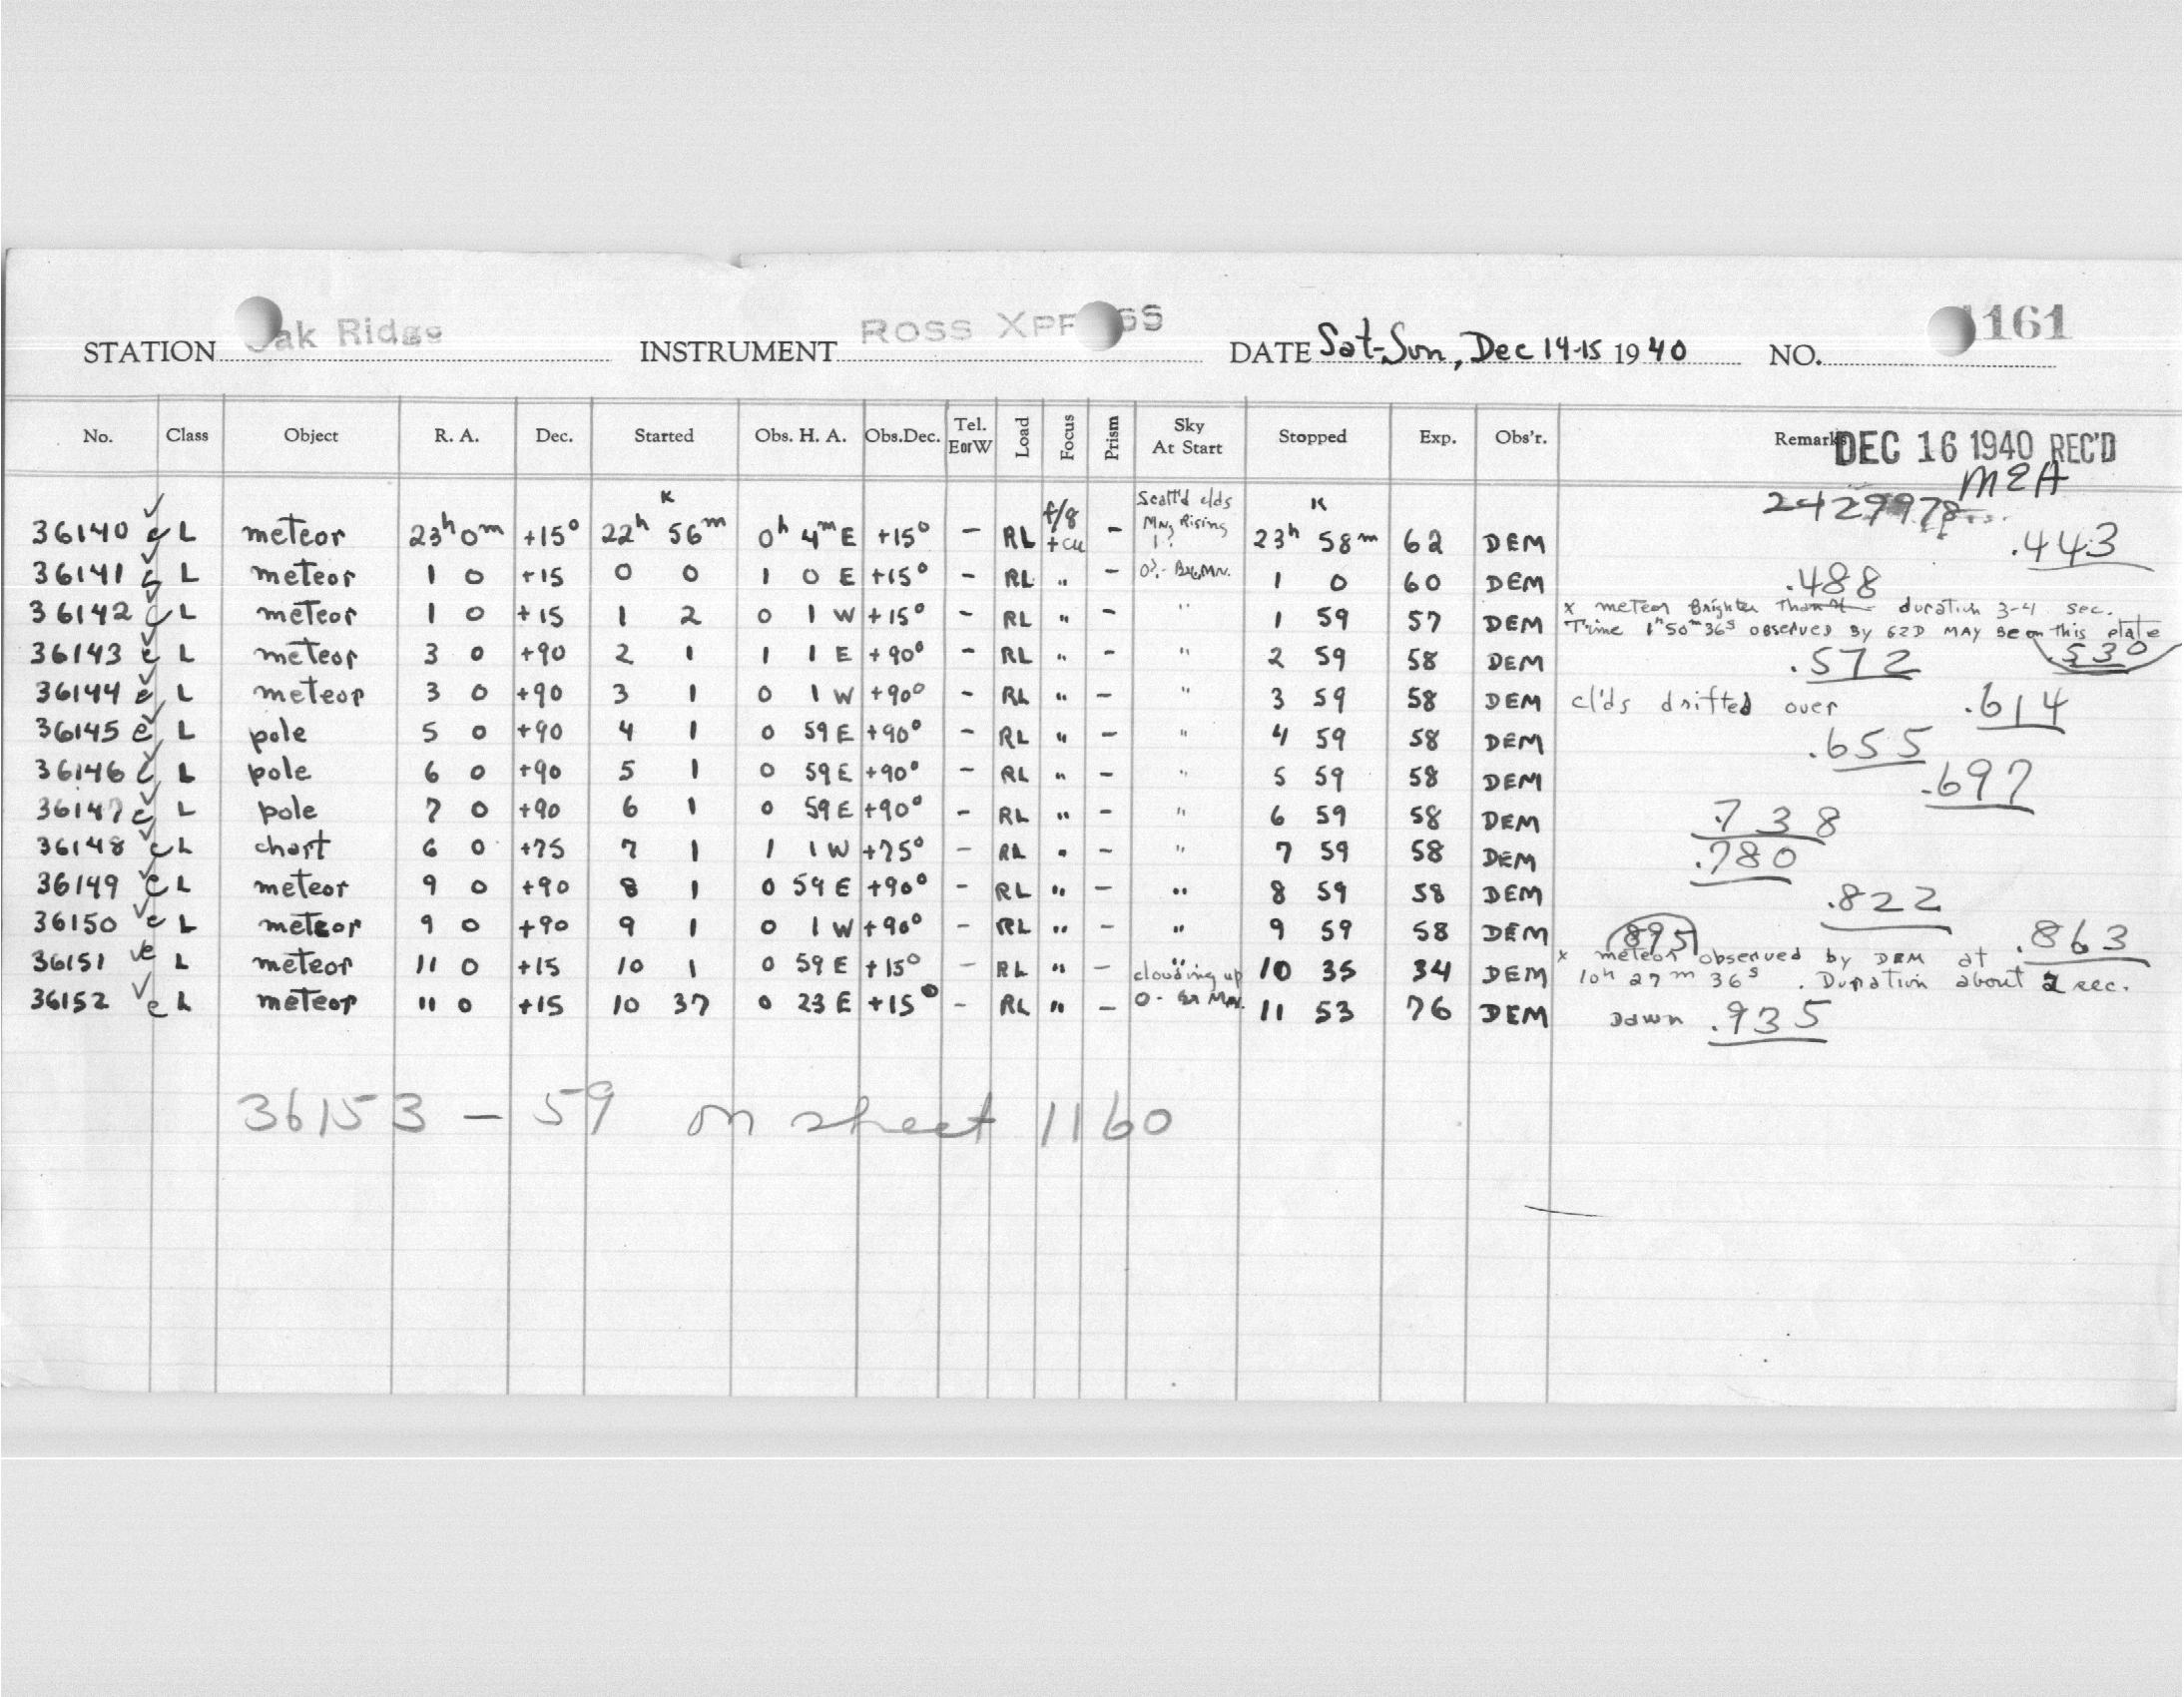 STATION Oak Ridge INSTRUMENT ROSS XPRESS DATE Sat-Sun, Dec 14-15 1940 NO. 1161
No. Class Object R. A. Dec. Started Obs. H. A. Obs.Dec. Tel. EorW Load Focus Prism Sky At Start Stopped Exp. Obs'r. Remarks
DEC 16 1940 REC'D
MEA
2429978
36140 e L meteor 23h 0m +15° 22h 56m 0h 4m E +15° - RL f/8 +cu - Scatt'd clds Mn, Rising 1? 23h 58m 62 DEM .443
36141 e L meteor 1 0 +15 0 0 1 0 E +15° - RL " - 0?- 1 0 60 DEM .488
36142 e L meteor 1 0 +15 1 2 0 1 W +15° - RL " - " 1 59 57 DEM x meteor Brighter than duration 3-4 sec.
Time 1h 50m 36s observed by GZD MAY Be on this plate .530
36143 e L meteor 3 0 +90 2 1 1 1 E +90° - RL " - " 2 59 58 DEM .572
36144 e L meteor 3 0 +90 3 1 0 1 W +90° - RL " - 3 59 58 DEM cl'ds drifted over .614
36145 e L pole 5 0 +90 4 1 0 59 E +90° - RL " - " 4 59 58 DEM .655
36146 e L pole 6 0 +90 5 1 0 59 E +90° - RL " - " 5 59 58 DEM .697
36147 e L pole 7 0 +90 6 1 0 59 E +90° - RL " - " 6 59 58 DEM .738
36148 e L chart 6 0 +75 7 1 1 1 W +75° - RL " - " 7 59 58 DEM .780
36149 e L meteor 9 0 +90 8 1 0 59 E +90° - RL " - " 8 59 58 DEM .822
36150 e L meteor 9 0 +90 9 1 0 1 W +90° - RL " - " 9 59 58 DEM .863
36151 e L meteor 11 0 +15 10 1 0 59 E +15° - RL " - " clouding up 10 35 34 DEM .895 x meteor observed by DEM at
10h 27m 36s. Duration about 2 sec.
36152 e L meteor 11 0 +15 10 37 0 23 E +15° - RL " - 0- 11 53 76 DEM Dawn .935
36153 - 59 on sheet 1160